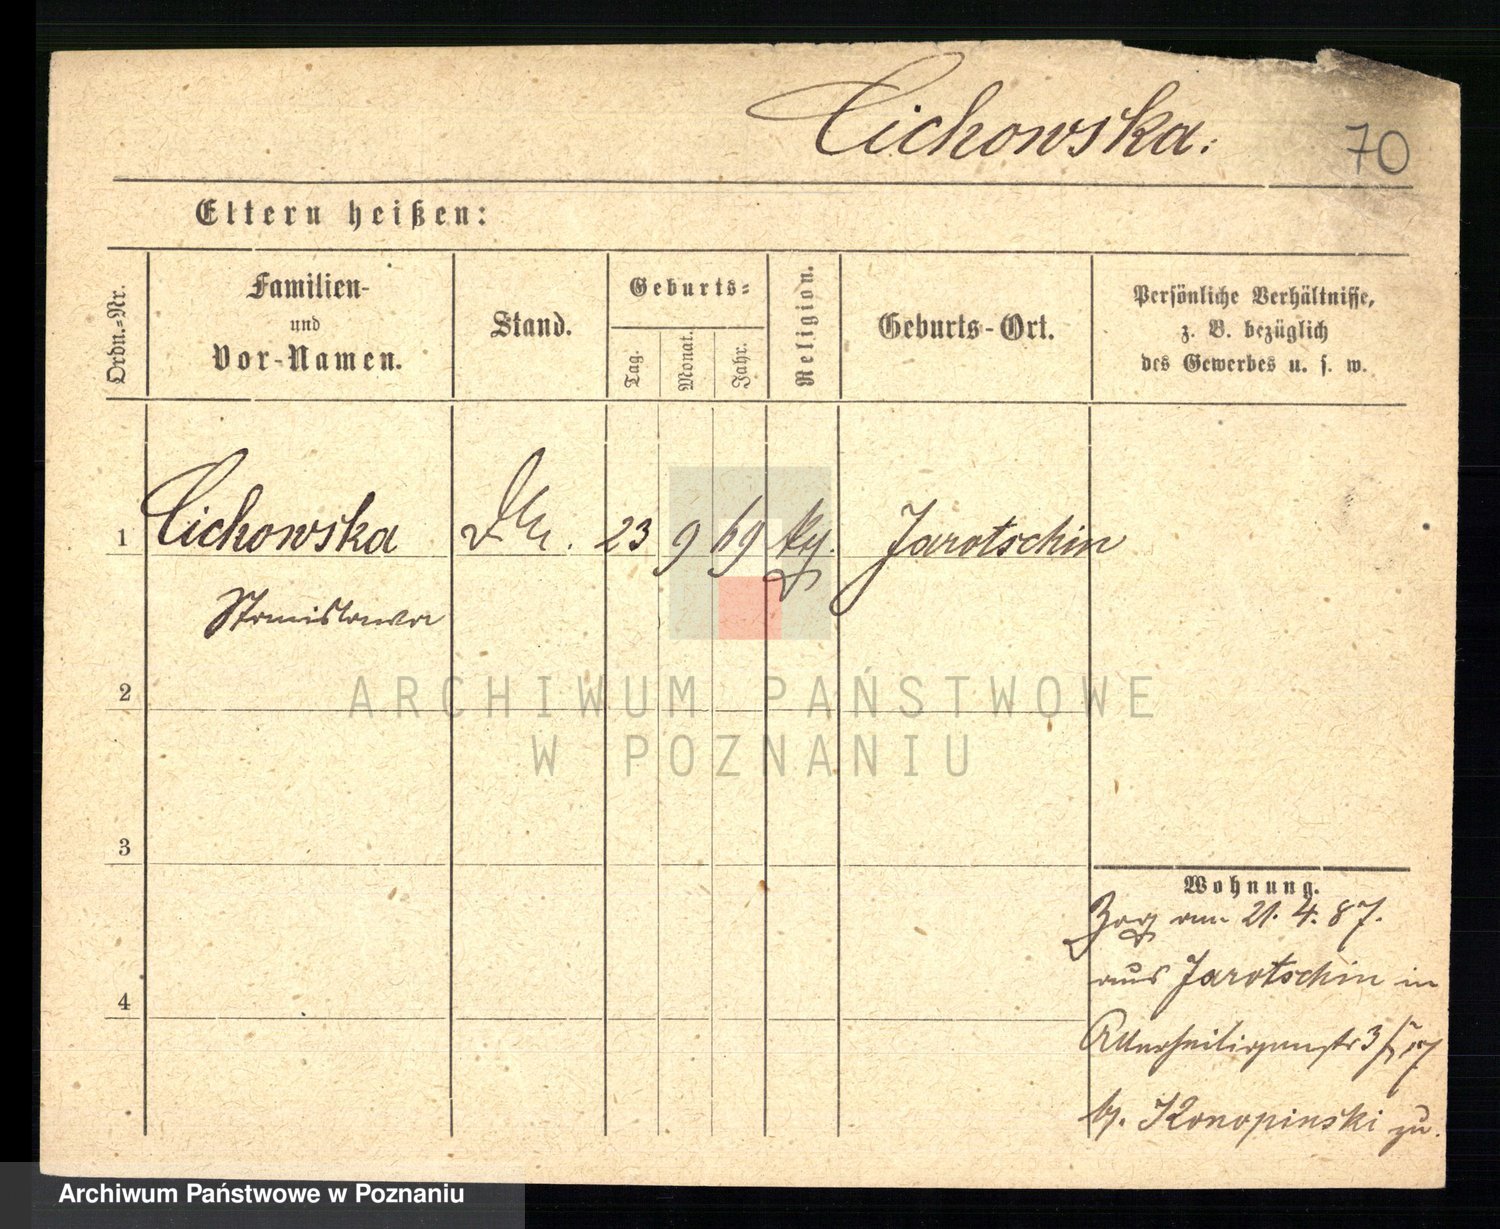 Cichowska.
70
Eltern heißen:
Ordn.-Nr.
Familien-
und
Vor-Namen.
Stand.
Geburts-
Tag.
Monat.
Jahr.
Religion.
Geburts-Ort.
Persönliche Verhältnisse,
z. B. bezüglich
des Gewerbes u. s. w.
1 Cichowska 23 9 69 Jarotschin
Stanislawa
2
ARCHIWUM PAŃSTWOWE
W POZNANIU
3
4
Wohnung.
Zog am 21. 4. 87.
aus Jarotschin in
Allerheiligenstr 3
b. Konopinski zu.
Archiwum Państwowe w Poznaniu